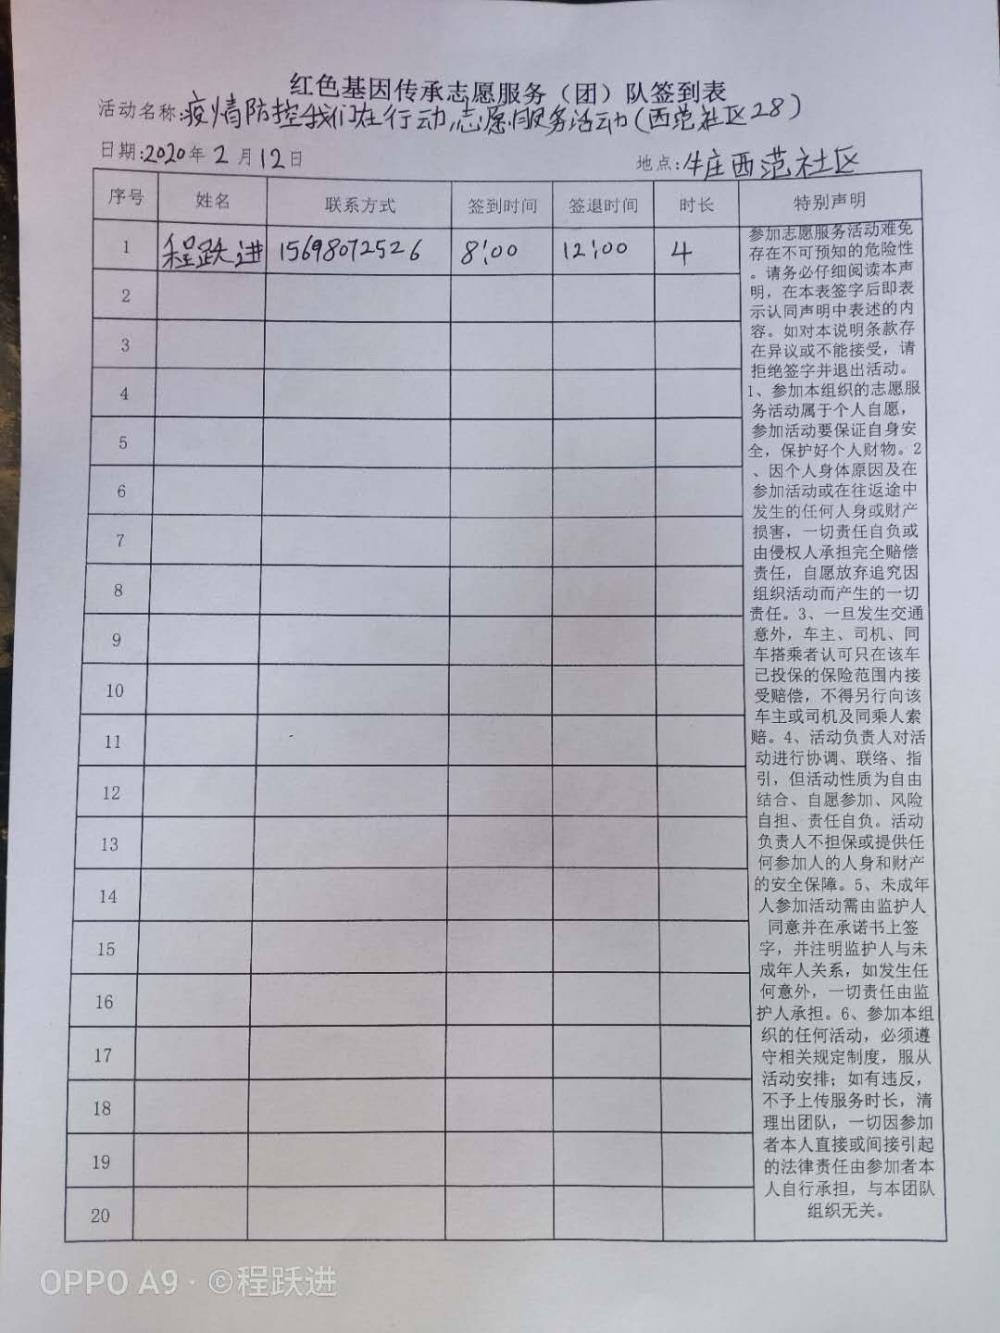 红色基因传承志愿服务（团）队签到表
活动名称:疫情防控我们在行动志愿服务活动(西范社区28)
日期:2020年2月12日 地点:牛庄西范社区
序号 姓名 联系方式 签到时间 签退时间 时长 特别声明
1 程跃进 15698072526 8:00 12:00 4
2
3
4
5
6
7
8
9
10
11
12
13
14
15
16
17
18
19
20
参加志愿服务活动难免
存在不可预知的危险性
。请务必仔细阅读本声
明，在本表签字后即表
示认同声明中表述的内
容。如对本说明条款存
在异议或不能接受，请
拒绝签字并退出活动。
1、参加本组织的志愿服
务活动属于个人自愿，
参加活动要保证自身安
全，保护好个人财物。2
、因个人身体原因及在
参加活动或在往返途中
发生的任何人身或财产
损害，一切责任自负或
由侵权人承担完全赔偿
责任，自愿放弃追究因
组织活动而产生的一切
责任。3、一旦发生交通
意外，车主、司机、同
车搭乘者认可只在该车
已投保的保险范围内接
受赔偿，不得另行向该
车主或司机及同乘人索
赔。4、活动负责人对活
动进行协调、联络、指
引，但活动性质为自由
结合、自愿参加、风险
自担、责任自负。活动
负责人不担保或提供任
何参加人的人身和财产
的安全保障。5、未成年
人参加活动需由监护人
同意并在承诺书上签
字，并注明监护人与未
成年人关系，如发生任
何意外，一切责任由监
护人承担。6、参加本组
织的任何活动，必须遵
守相关规定制度，服从
活动安排；如有违反，
不予上传服务时长，清
理出团队，一切因参加
者本人直接或间接引起
的法律责任由参加者本
人自行承担，与本团队
组织无关。
OPPO A9 · ©程跃进